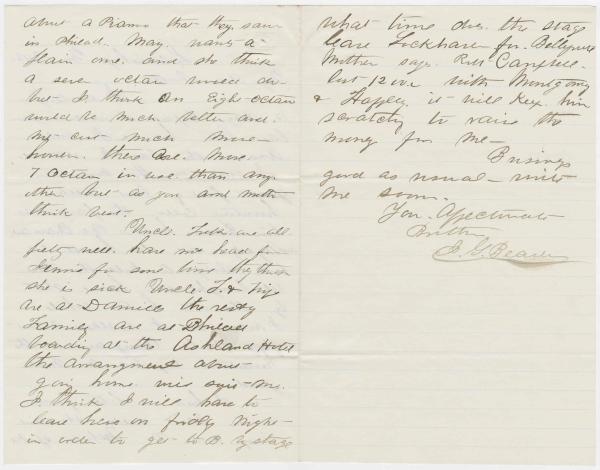 about a Piano that they saw
in Philad. May wants a
plain one. and she think
a seven octave would do
but I think an Eight octave
would be much better and
not cost much more
however. there are more
7 Octave in use than any
other but as you and moth
think best.
Uncle folks are all
pretty well. have not head from
Jennie for some time they think
she is sick Uncle J. &
are at Daniels the rest of
Family are at Philad
boarding at the Ashland Hotel
the arrangment about
going home will suit me.
I think I will have to
leave here on fridy night
in order to get to B. by stage
what time does the stage
leave Lockhaven for Bellefonte
Mother says Ross Campbell
lost 1200 with Montgomery
& it will keep him
scratching to raise the
money for me
Buisings
good as usual write
me soon.
Your Affectionate
Brother
J. G. Beaver